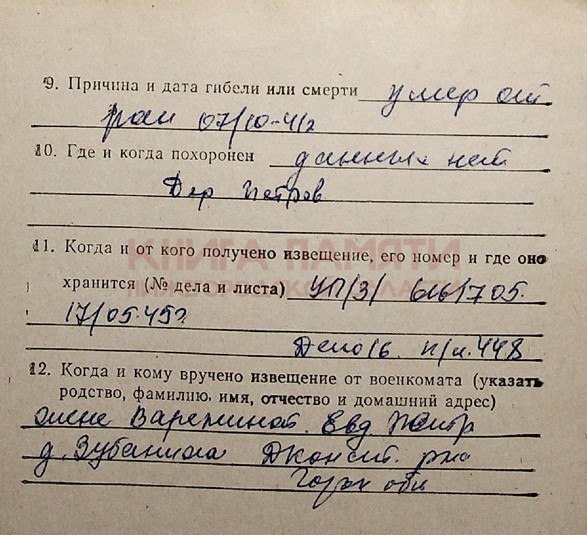 9. Причина и дата гибели или смерти умер от
ран 07/10-42
10. Где и когда похоронен данных нет
Дер Петров
11. Когда и от кого получено извещение, его номер и где оно
КНИГА ПАМЯТИ
хранится (№ дела и листа) УП/3/ 6161705.
17/05.45г
Дело 16. п/н. 448
12. Когда и кому вручено извещение от военкомата (указать
родство, фамилию, имя, отчество и домашний адрес)
жене Варежиной. Евд
д. Зубаниха
Горьк обл